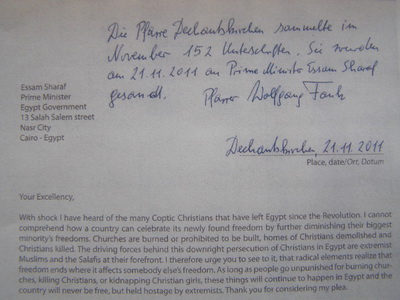 Die Pfarre Dechantskirchen sammelte im
November 152 Unterschriften. Sie wurden
am 21.11.2011 an Prime Minister Essam Sharaf
gesandt. Pfarrer Wolfgang
Essam Sharaf
Prime Minister
Egypt Government
13 Salah Salem street
Nasr City
Cairo - Egypt
Dechantskirchen, 21.11.2011
Place, date/Ort, Datum
Your Excellency,
With shock I have heard of the many Coptic Christians that have left Egypt since the Revolution. I cannot
comprehend how a country can celebrate its newly found freedom by further diminishing their biggest
minority's freedoms. Churches are burned or prohibited to be built, homes of Christians demolished and
Christians killed. The driving forces behind this downright persecution of Christians in Egypt are extremist
Muslims and the Salafis at their forefront. I therefore urge you to see to it, that radical elements realize that
freedom ends where it affects somebody else's freedom. As long as people go unpunished for burning chur-
ches, killing Christians, or kidnapping Christian girls, these things will continue to happen in Egypt and the
country will never be free, but held hostage by extremists. Thank you for considering my plea.